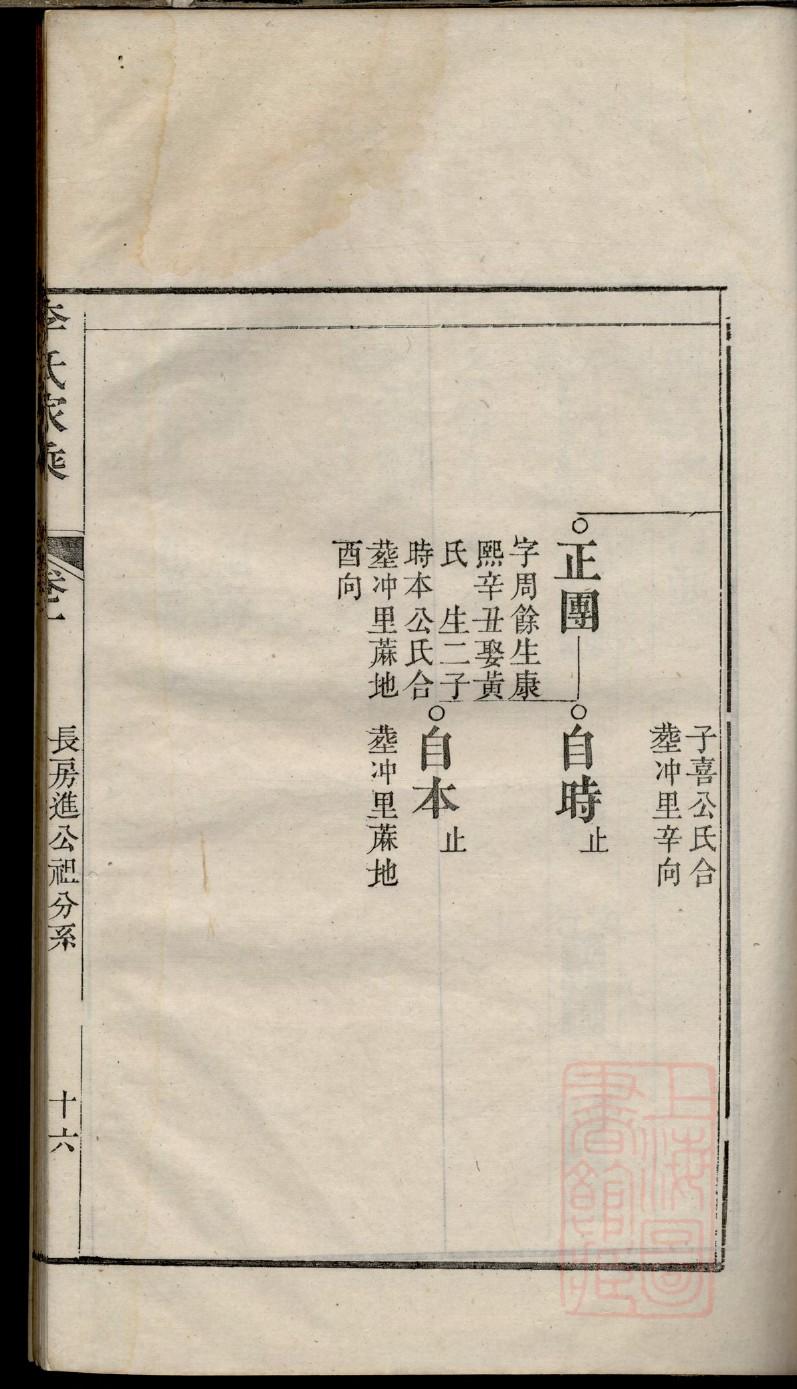 子喜公氏合
塟冲里辛向
正團
字周餘生康
熙辛丑娶黃
氏　生二子
時本公氏合
塟冲里蔴地
酉向
自時
止
自本
止
塟冲里蔴地
李氏家乘
卷一
長房進公祖分系
十六
上海圖
書館藏